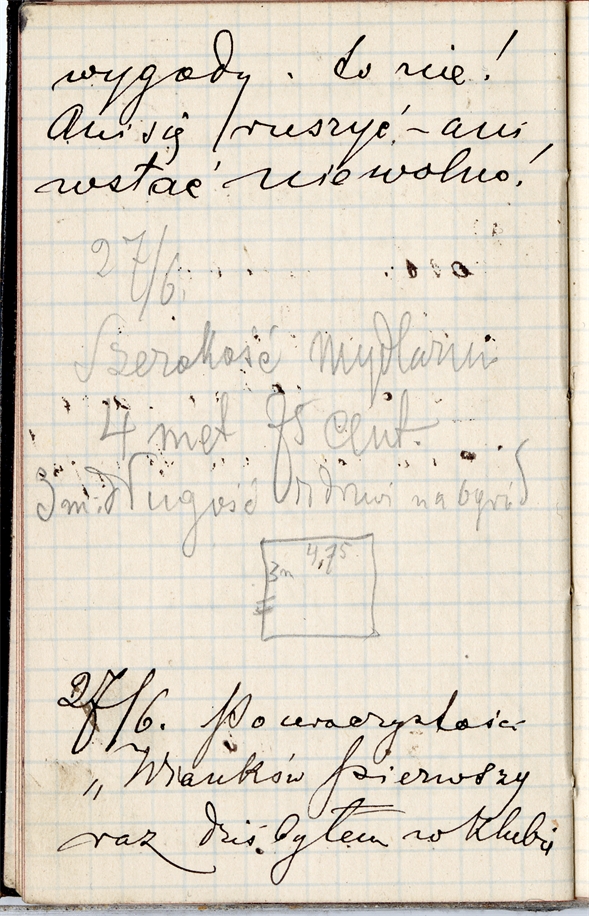 wygody. to nie!
Ani się ruszyć – ani
wstać nie wolno!
27/6.
Szerokość mydlarni
4 met 75 cent.
3 m. Długość drzwi na ogród
4,75
3m
27/6. Po uroczystości
„Wianków pierwszy
raz dziś byłem w Klubie